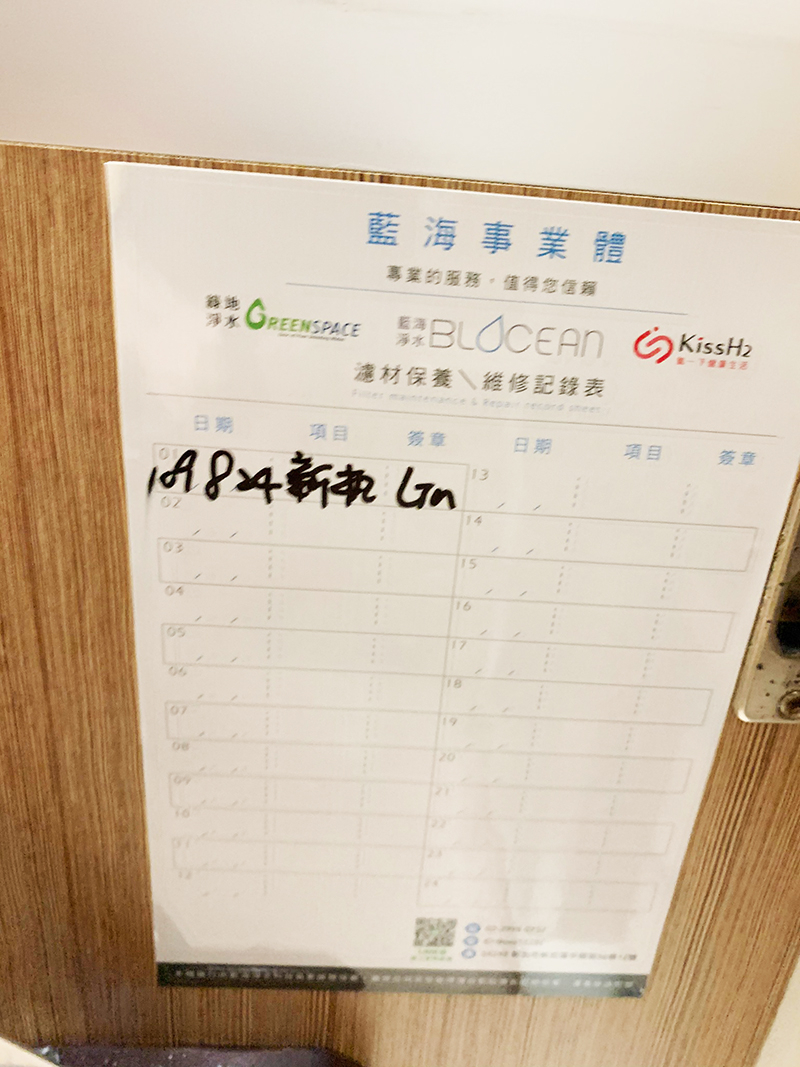 藍海事業體
專業的服務，值得您信賴
綠地淨水 GREENSPACE
藍海淨水 BLOCEAN
KissH2
氫一下健康生活
濾材保養＼維修記錄表
Filter maintenance & Repair record sheet
日期 項目 簽章 日期 項目 簽章
01 109 8 24 新機 13
02 14
03 15
04 16
05 17
06 18
07 19
08 20
09 21
10 22
11 23
12 24